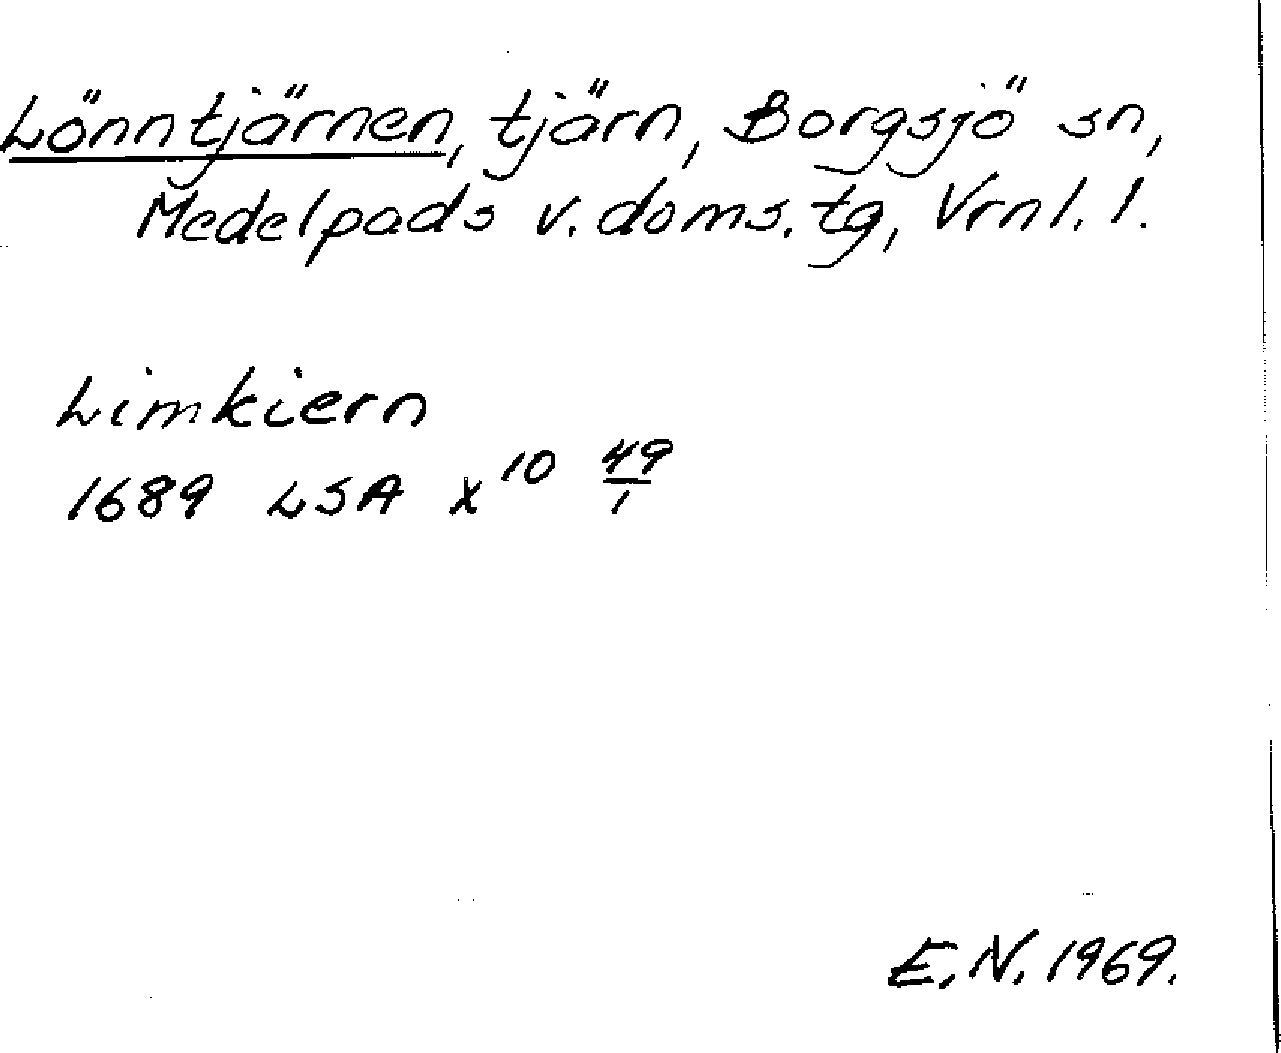 Lönntjärnen, tjärn, Borgsjö sn,
Medelpads v. doms. tg, Vrnl. l.
Limkiern
1689 LSA X 10 49/1
E.N. 1969.